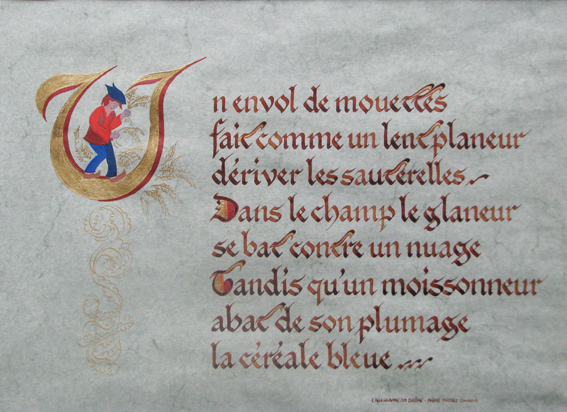 Un envol de mouettes
fait comme un lent planeur
dériver les sauterelles.
Dans le champ le glaneur
se bat contre un nuage
Tandis qu'un moissonneur
abat de son plumage
la céréale bleue ...